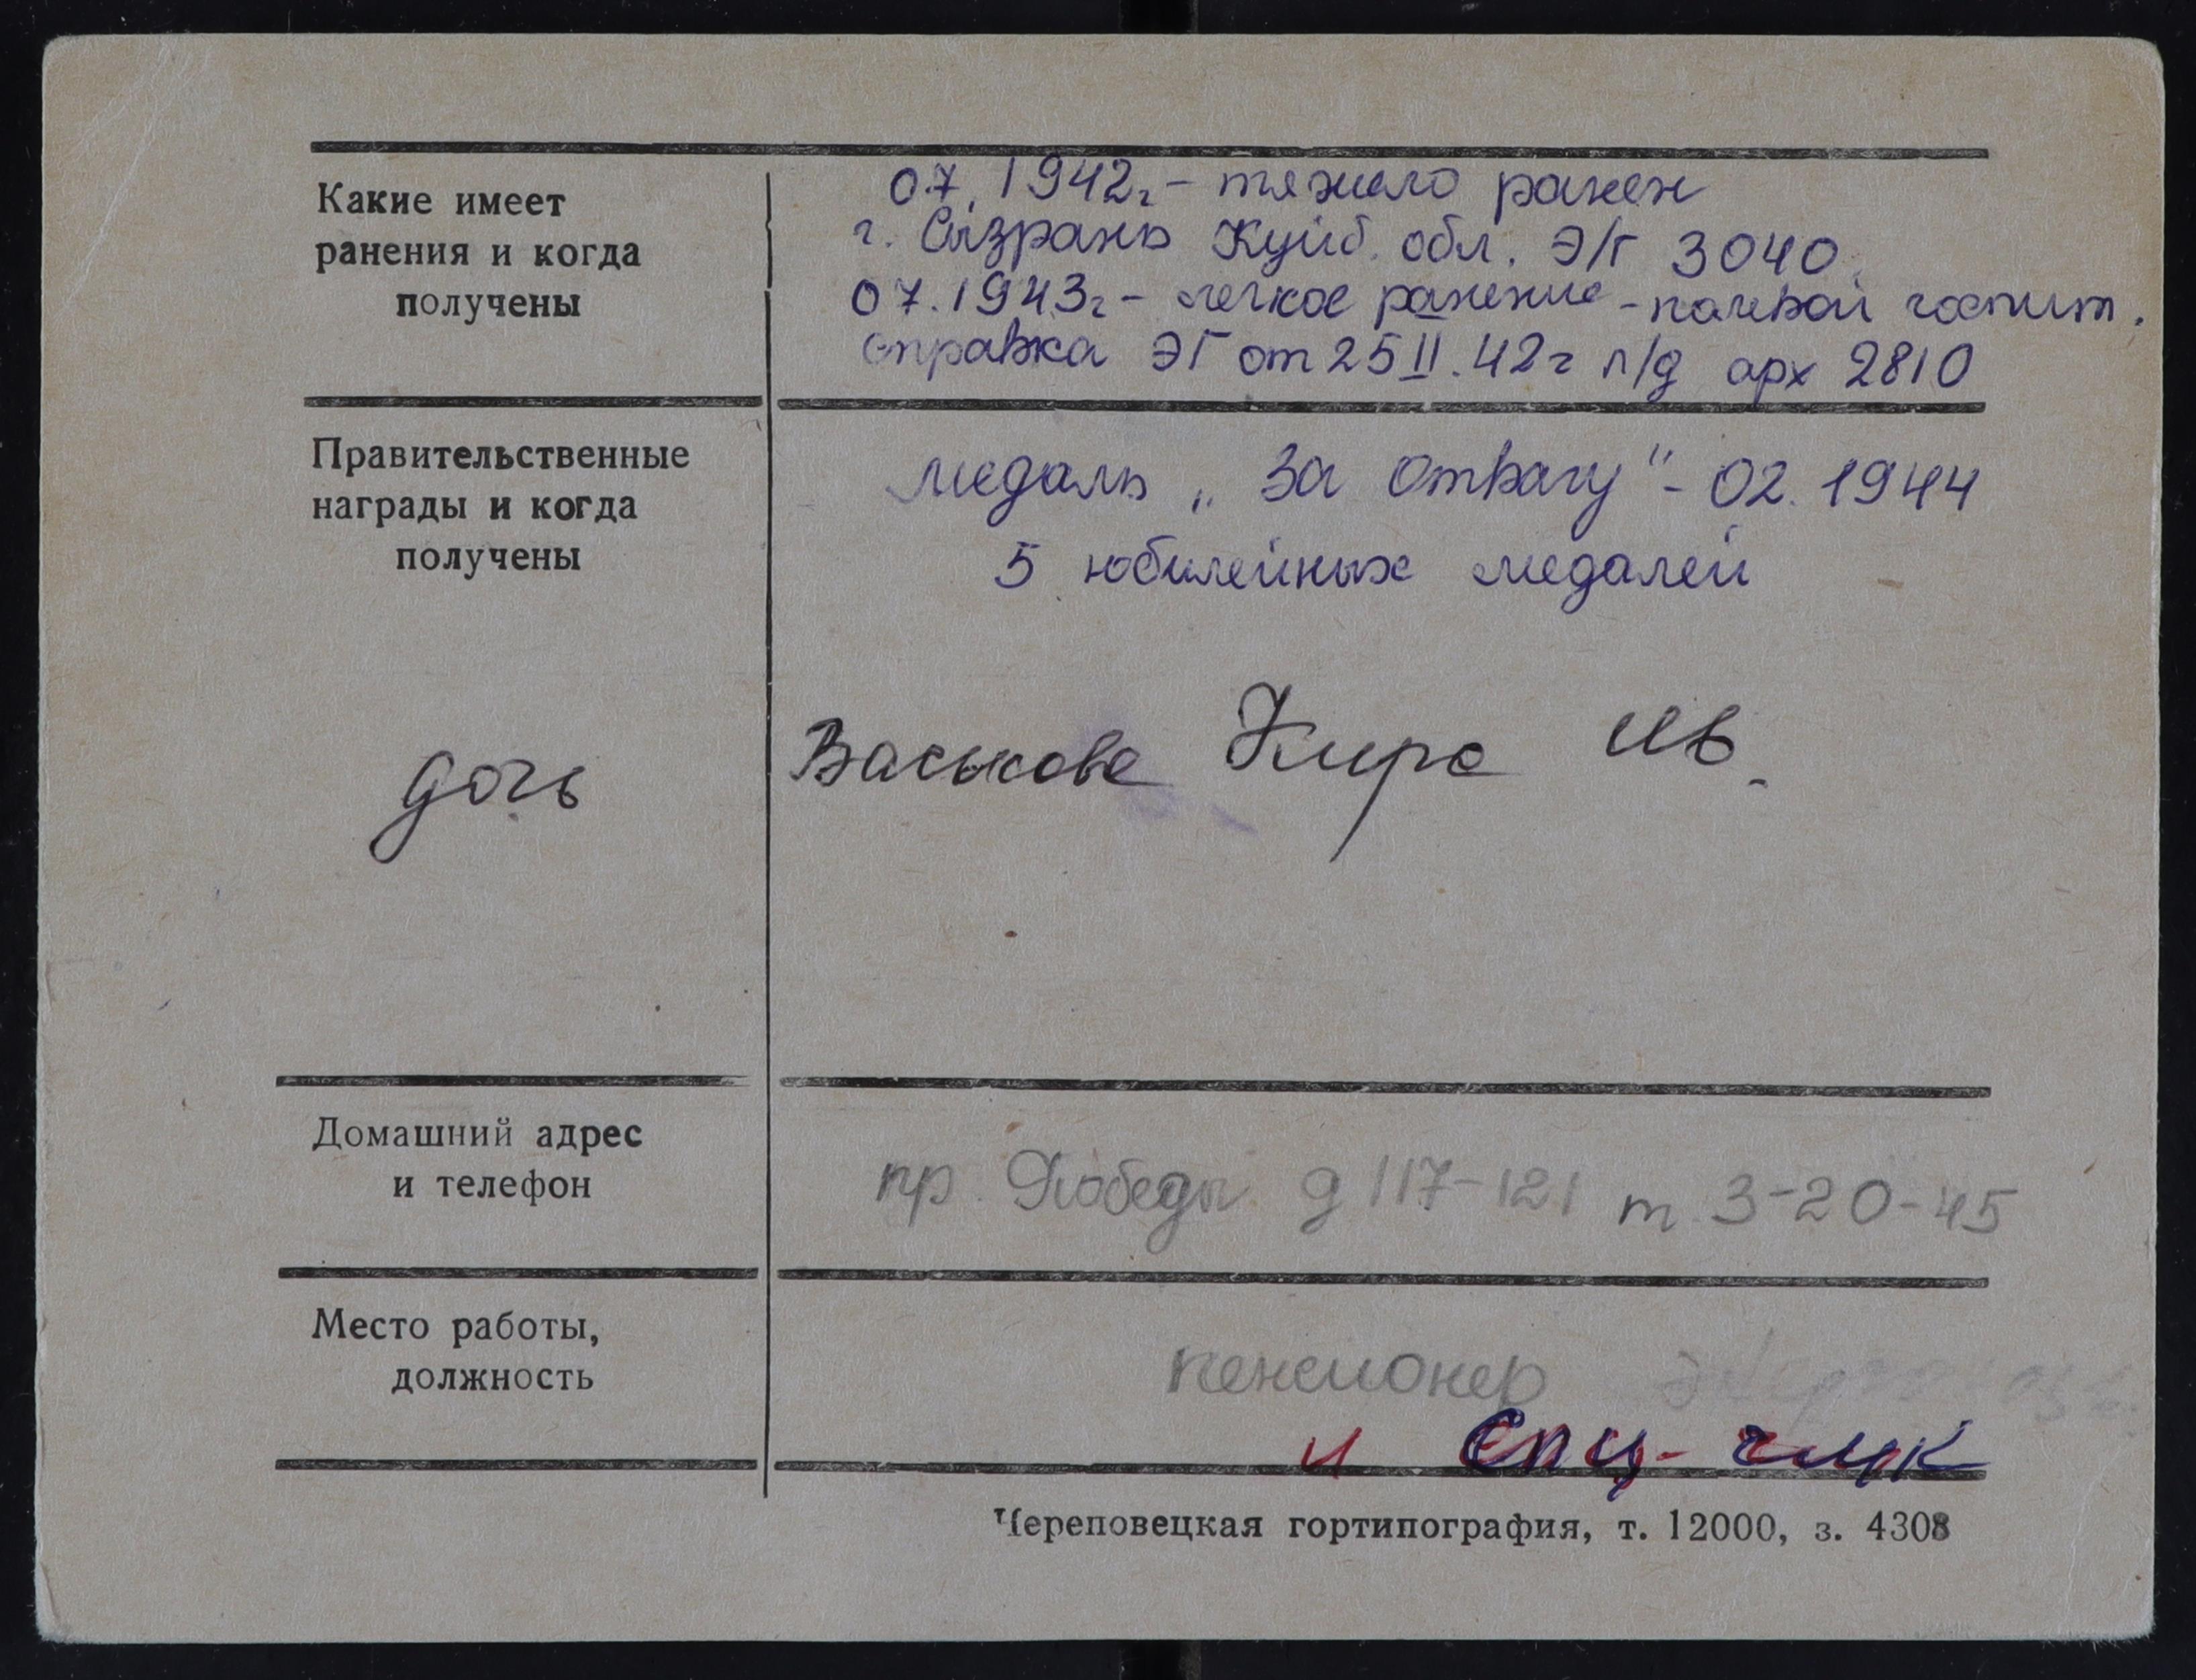 Какие имеет
ранения и когда
получены
07.1942г - тяжело ранен
г. Сызрань Куйб. обл. Э/Г 3040.
07.1943г - легкое ранение - полевой госпит.
справка ЭГ от 25 II. 42г л/д арх 2810
Правительственные
награды и когда
получены
медаль „За отвагу" - 02.1944
5 юбилейных медалей
дочь
Васькова Кира Ив.
Домашний адрес
и телефон
пр. Победы д 117-121 т. 3-20-45
Место работы,
должность
пенсионер
и спц- чмк
Череповецкая гортипография, т. 12000, з. 4308